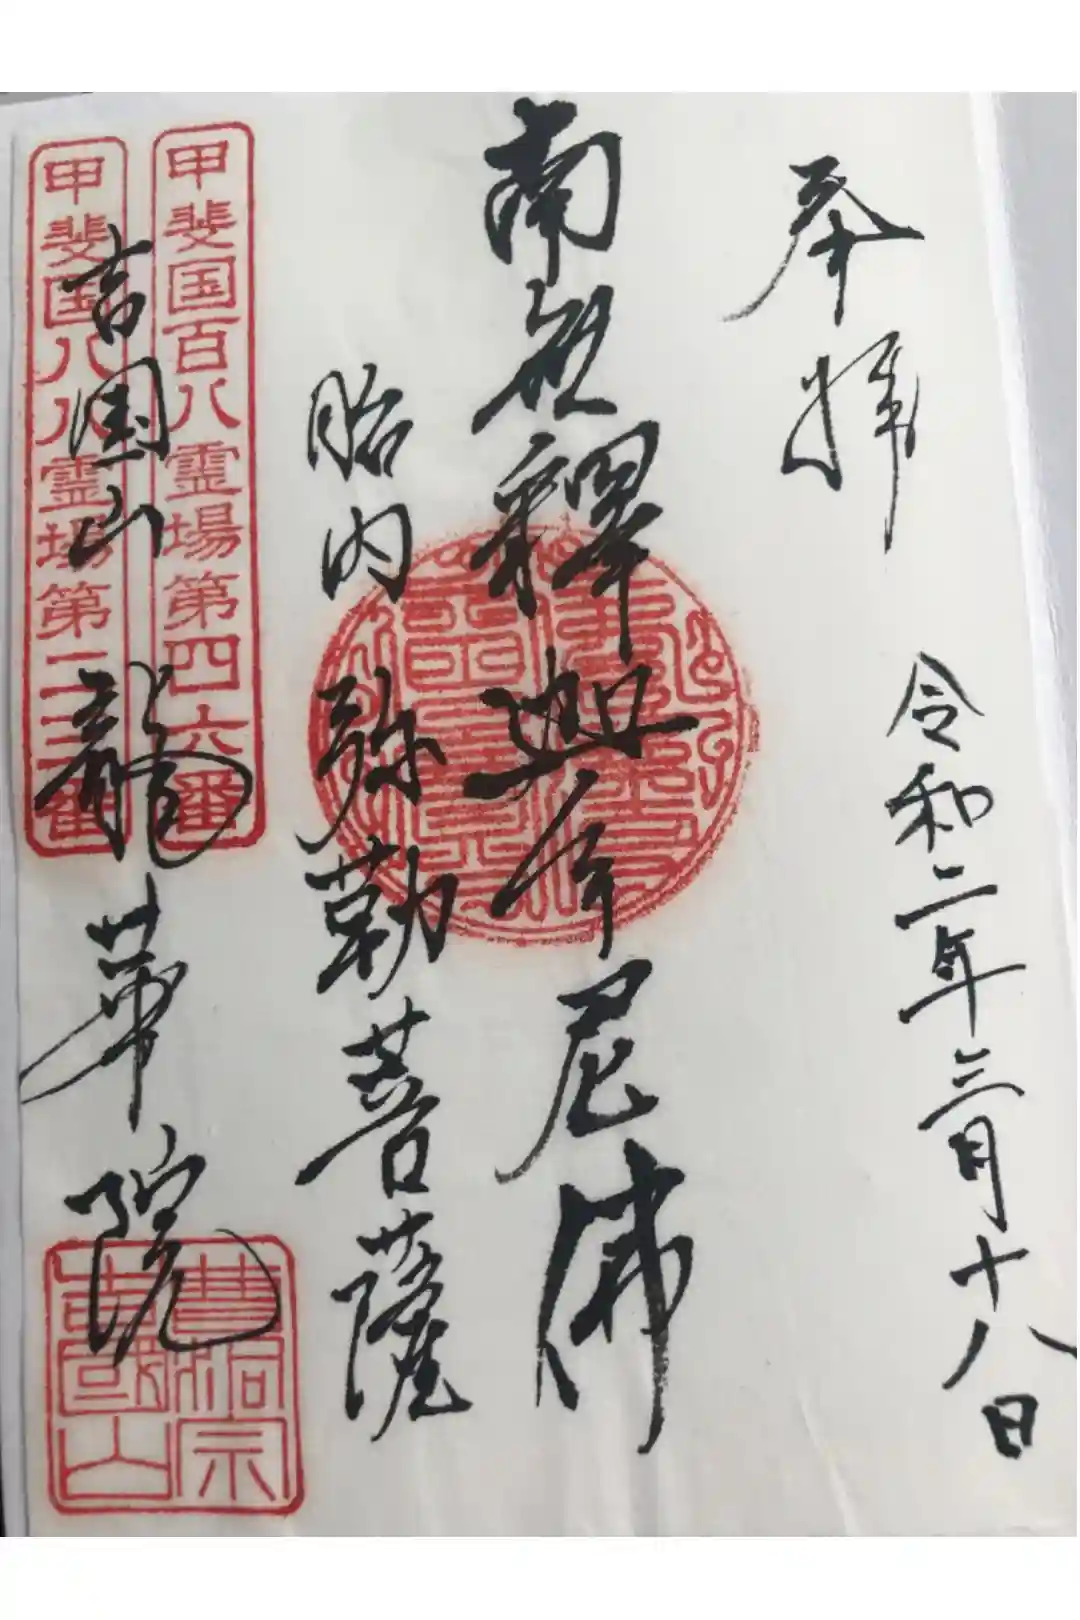 奉拝
令和二年三月十八日
南無釋迦牟尼佛
胎内弥勒菩薩
甲斐国百八霊場第四六番
甲斐国八八霊場第二三番
吉国山龍華院
曹洞宗
吉國山